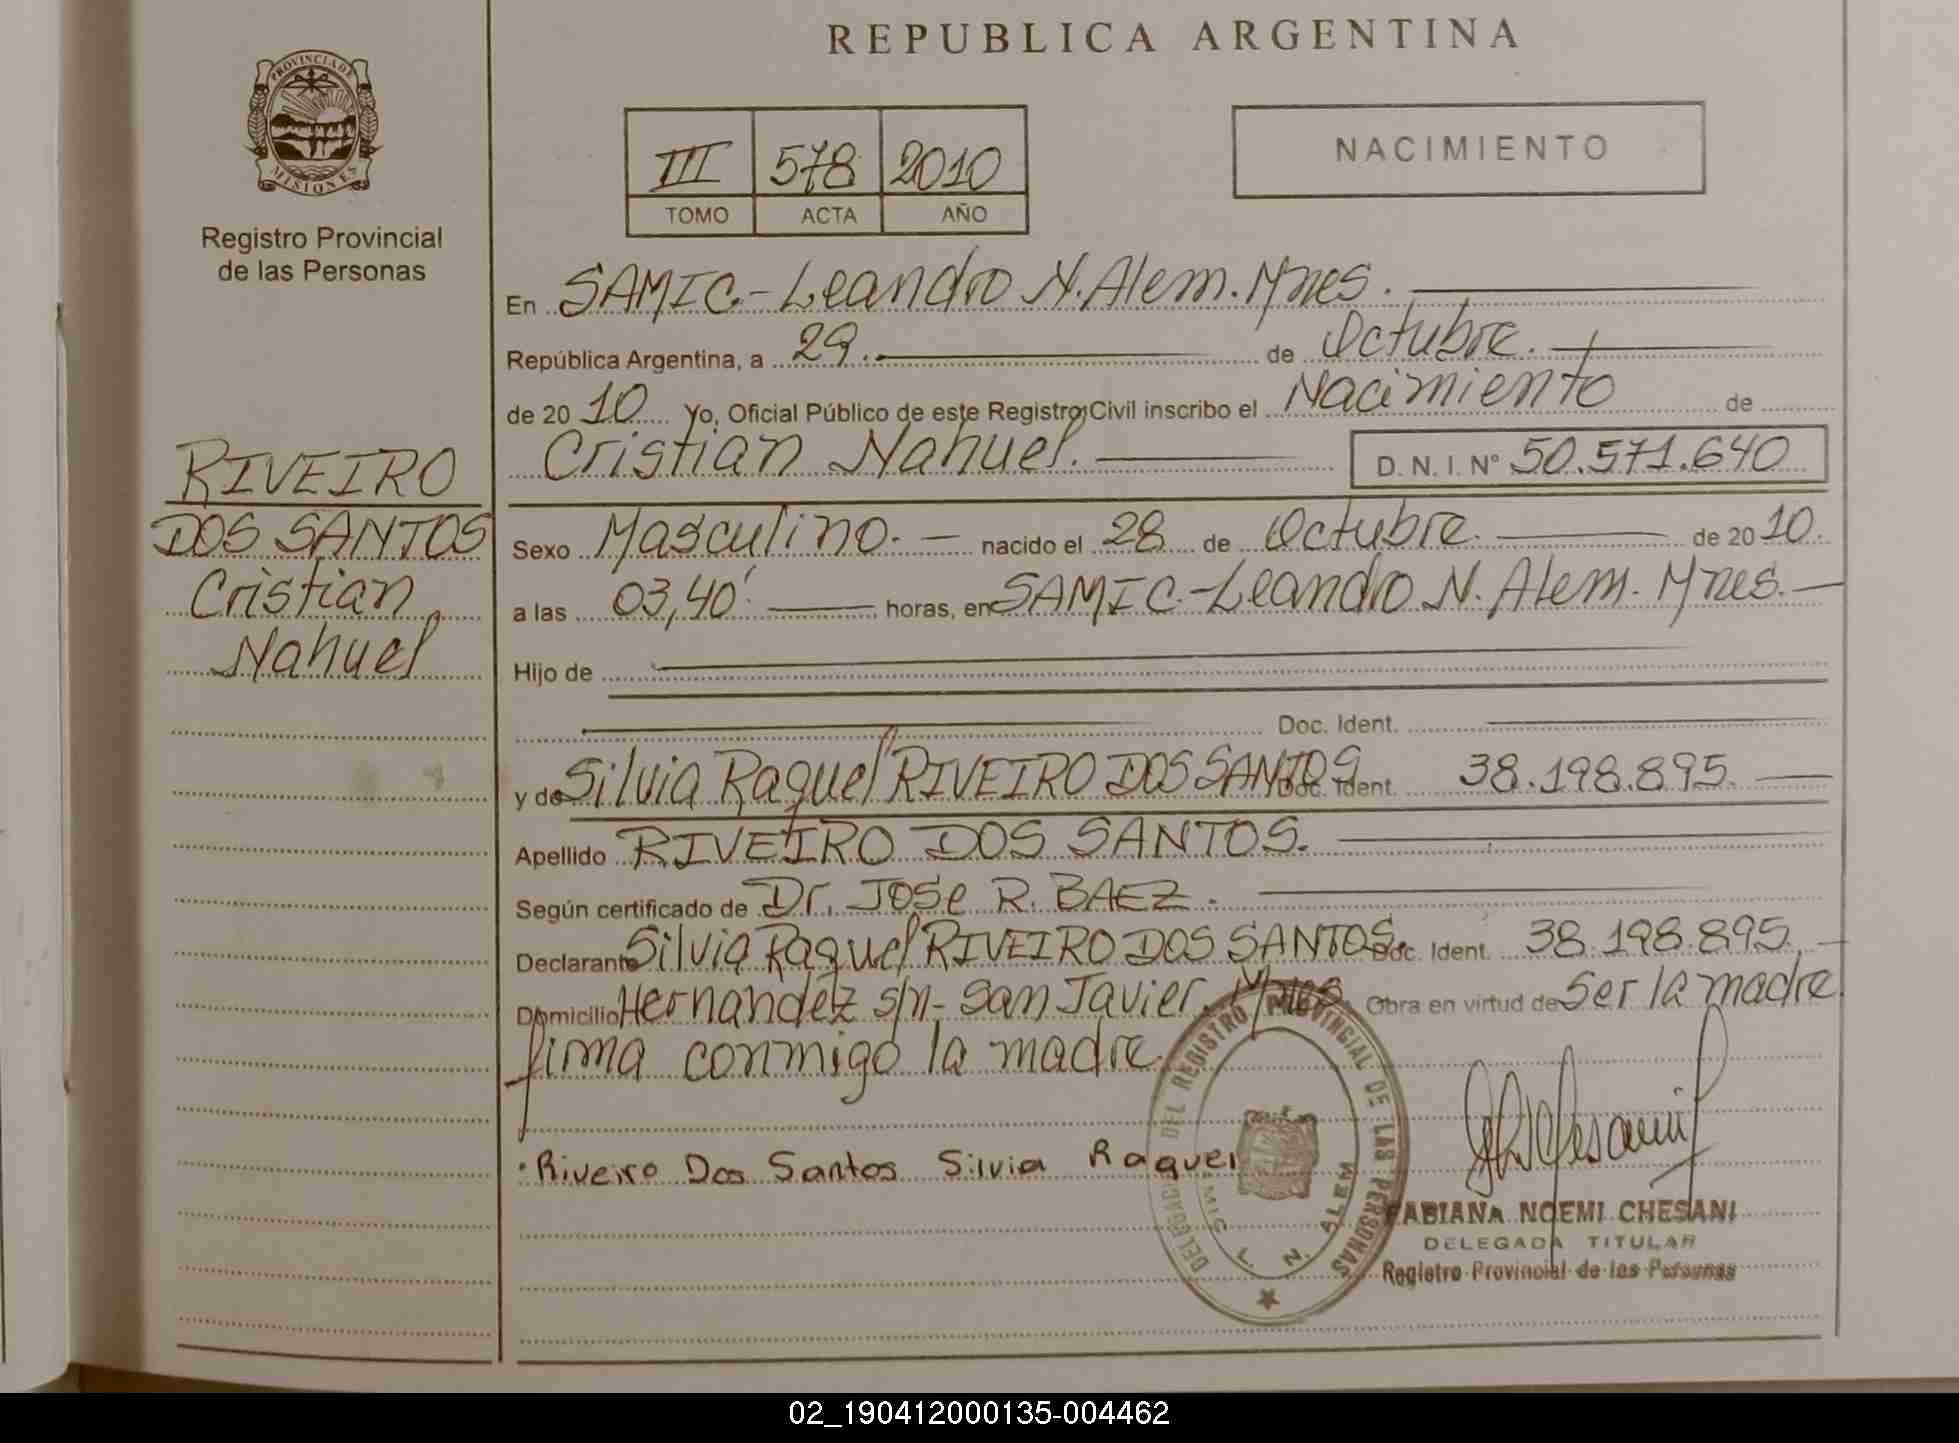 REPUBLICA ARGENTINA
PROVINCIA DE MISIONES
Registro Provincial
de las Personas
III 578 2010
TOMO ACTA AÑO
NACIMIENTO
En SAMIC.-Leandro N. Alem. Mnes.
República Argentina, a 29. de Octubre.
de 20 10 Yo, Oficial Público de este Registro Civil inscribo el Nacimiento de
Cristian Nahuel. D. N. I. Nº 50.571.640
RIVEIRO
DOS SANTOS
Cristian
Nahuel
Sexo Masculino. nacido el 28 de Octubre. de 20 10.
a las 03,40' horas, en SAMIC.-Leandro N. Alem. Mnes.
Hijo de
Doc. Ident.
y de Silvia Raquel RIVEIRO DOS SANTOS Doc. Ident. 38.198.895.
Apellido RIVEIRO DOS SANTOS.
Según certificado de Dr. JOSe R. BAEZ.
Declarante Silvia Raquel RIVEIRO DOS SANTOS. Doc. Ident. 38.198.895.
Domicilio Hernandez s/n- San Javier. Mnes Obra en virtud de Ser la madre.
firma conmigo la madre.
Riveiro Dos Santos Silvia Raquel
DELEGACIA DEL REGISTRO PROVINCIAL DE LAS PERSONAS
SAMIC L. N. ALEM
FABIANA NOEMI CHESANI
DELEGADA TITULAR
Registro Provincial de las Personas
02_190412000135-004462